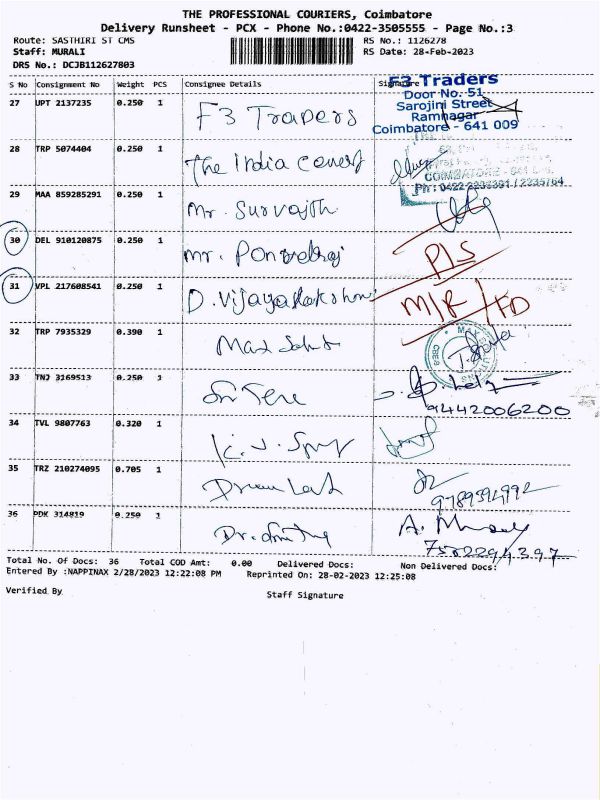 THE PROFESSIONAL COURIERS, Coimbatore
Delivery Runsheet - PCX - Phone No.:0422-3505555 - Page No.:3
Route: SASTHIRI ST CMS RS No.: 1126278
Staff: MURALI RS Date: 28-Feb-2023
DRS No.: DCJB112627803
S No Consignment No Weight PCS Consignee Details Signature
F3 Traders
Door No. 51
Sarojini Street
Ramnagar
Coimbatore - 641 009
27 UPT 2137235 0.250 1 F3 Traders
28 TRP 5074404 0.250 1 The India
COIMBATORE
Ph: 0422
29 MAA 859285291 0.250 1 Mr. Survajth
30 DEL 910120875 0.250 1 Mr. P/S
31 VPL 217608541 0.250 1 D. Vijayalakshmi M/R / FD
32 TRP 7935329 0.390 1
33 TNJ 3169513 0.250 1
9442006200
34 TVL 9807763 0.320 1
35 TRZ 210274095 0.705 1
36 PDK 314819 0.250 1 Dr. A.
Total No. Of Docs: 36 Total COD Amt: 0.00 Delivered Docs: Non Delivered Docs:
Entered By :NAPPINAX 2/28/2023 12:22:08 PM Reprinted On: 28-02-2023 12:25:08
Verified By Staff Signature